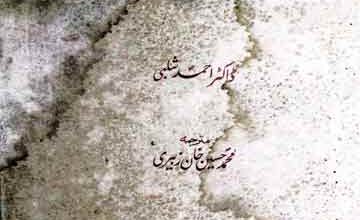 ڈاکٹر احمد شلبی
مترجمہ
محمد حسین خان زبیری